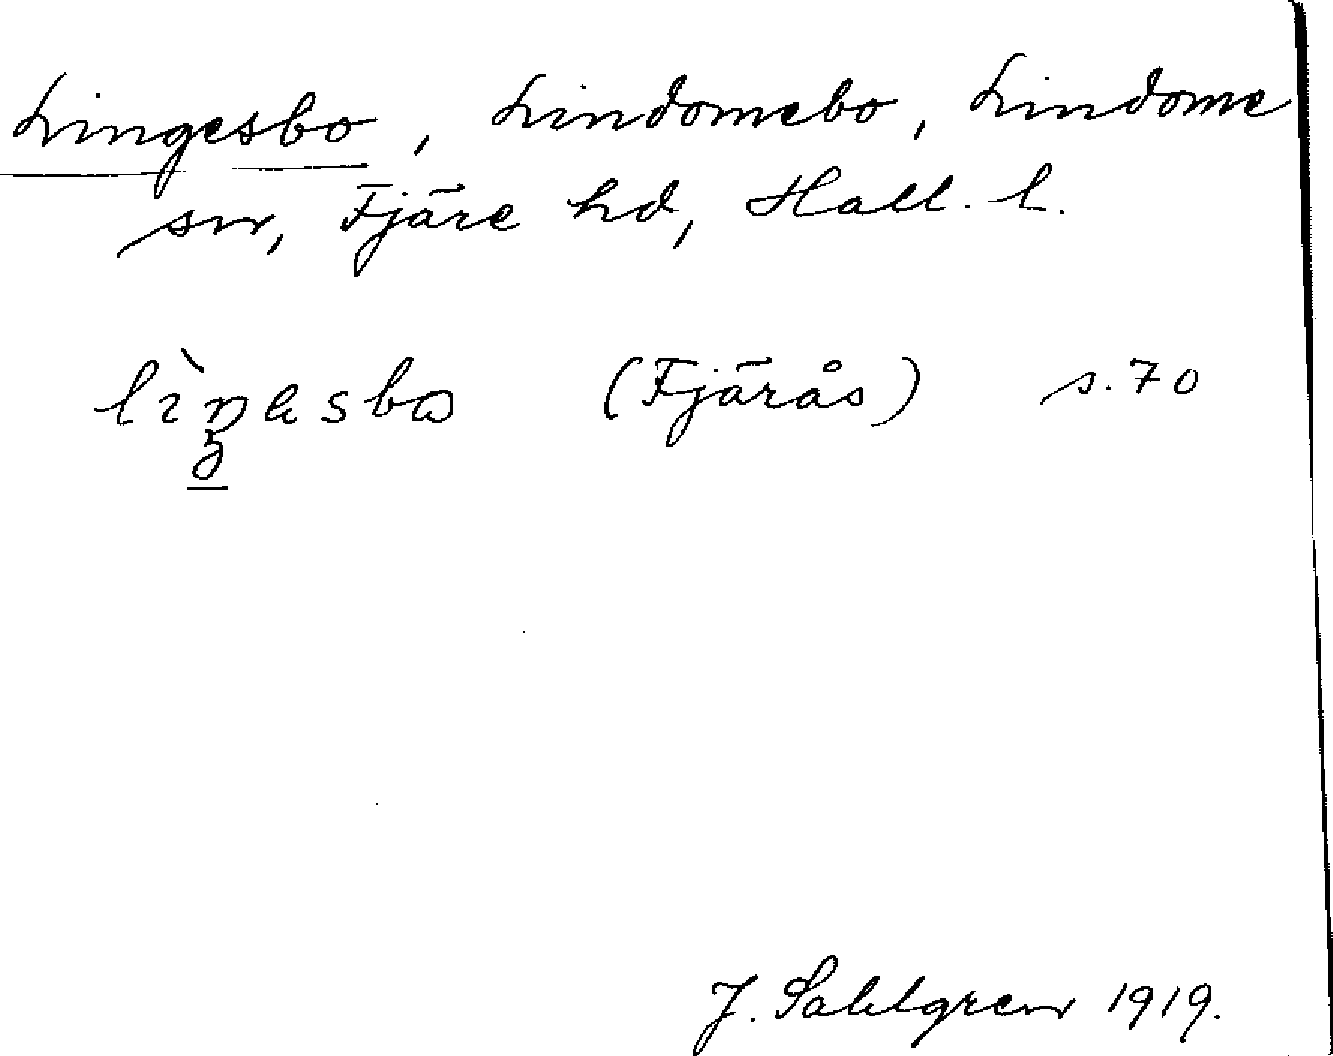 Lingesbo, Lindomebo, Lindome
sn, Fjäre hd, Hall. l.
lìŋɐsbɷ (Fjärås) s. 70
J. Sahlgren 1919.